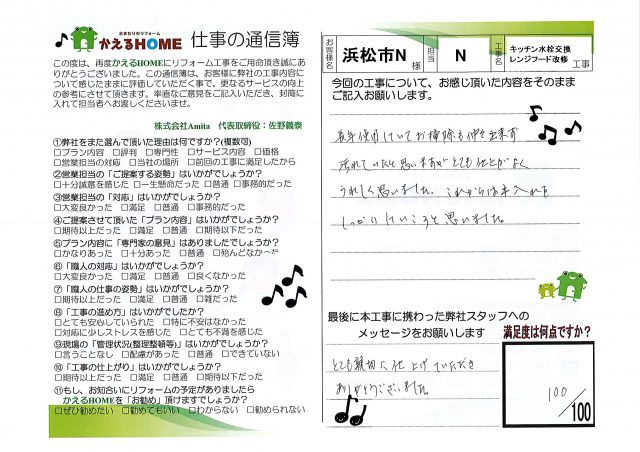 水まわりのリフォーム
かえるHOME 仕事の通信簿
この度は、再度かえるHOMEにリフォーム工事をご用命頂き誠にあ
りがとうございました。この通信簿は、お客様に弊社の工事内容に
ついて感じたままに評価していただく事で、更なるサービスの向上
の参考にさせて頂きます。率直なご意見をご記入いただき、封筒に
入れて担当者へお渡しくださいませ。
株式会社Amita 代表取締役：佐野義泰
①弊社をまた選んで頂いた理由は何ですか?(複数可)
□プラン内容 □評判 □専門性 □サービス内容 □価格
□営業担当の対応 □当社の場所 □前回の工事に満足したから
②営業担当の「ご提案する姿勢」はいかがでしょうか?
□十分誠意を感じた □一生懸命だった □普通 □事務的だった
③営業担当の「対応」はいかがでしょうか?
□大変良かった □満足 □普通 □事務的だった
④ご提案させて頂いた「プラン内容」はいかがでしょうか?
□期待以上だった □満足 □普通 □期待以下だった
⑤プラン内容に「専門家の意見」はありましたでしょうか?
□かなりあった □十分あった □普通 □殆んどなかった
⑥「職人の対応」はいかがでしょうか?
□大変良かった □満足 □普通 □良くなかった
⑦「職人の仕事の姿勢」はいかがでしょうか?
□期待以上だった □満足 □普通 □雑だった
⑧「工事の進め方」はいかがでしたか?
□とても安心していられた □特に不安はなかった
□対応に少しストレスを感じた □とても不路を感じた
⑨現場の「管理状況(整理整頓等)」はいかがでしょうか?
□言うことなし □配慮があった □普通 □できていない
⑩「工事の仕上がり」はいかがでしょうか?
□期待以上だった □満足 □普通 □期待以下だった
⑪もし、お知合いにリフォームの予定がありましたら
かえるHOMEを「お勧め」頂けますでしょうか?
□ぜひ勧めたい □勧めてもいい □わからない □勧められない
お客様名 浜松市N 様 担当 N 工事名 キッチン水栓交換
レンジフード改修 工事
今回の工事について、お感じ頂いた内容をそのまま
ご記入お願いします。
長年使用していてお掃除も
汚れていたと思いますがとても仕上がよく
うれしく思いました。これからは手入れを
しっかりしていこうと思いました。
最後に本工事に携わった弊社スタッフへの
メッセージをお願いします
満足度は何点ですか?
とても親切に仕上げていただき
ありがとうございました。
100/100